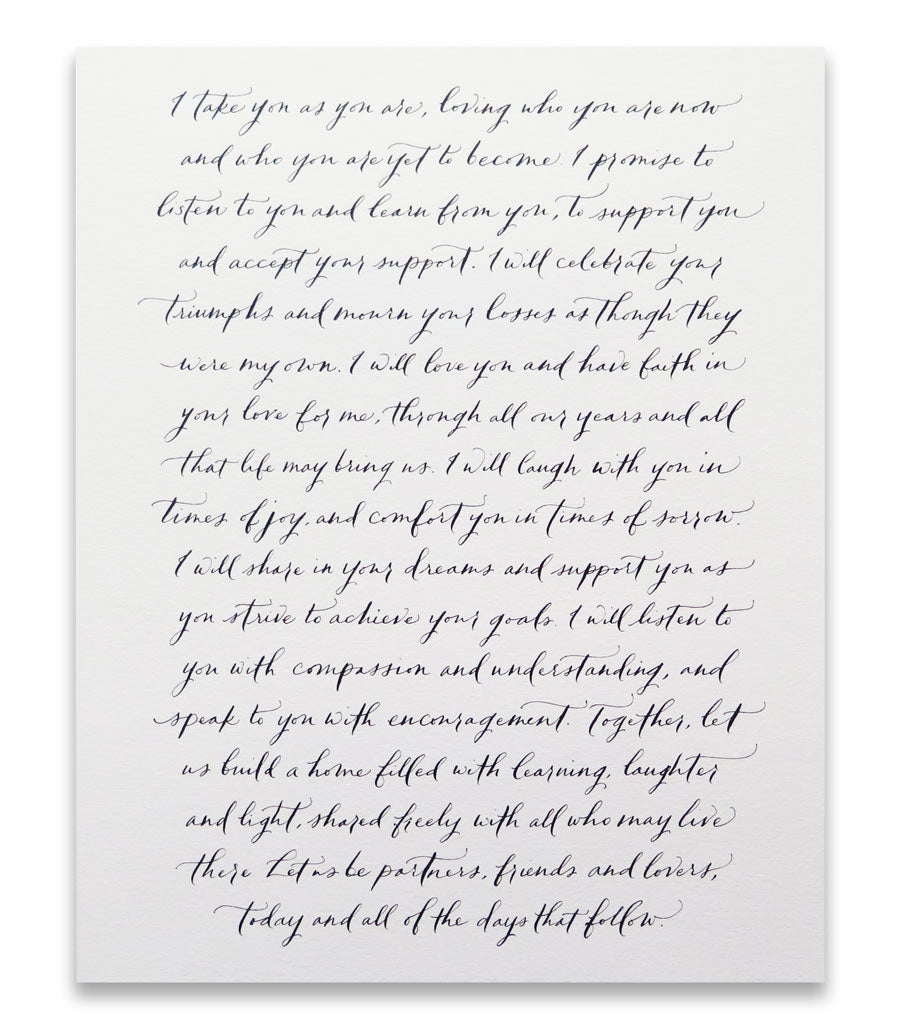 I take you as you are, loving who you are now
and who you are yet to become. I promise to
listen to you and learn from you, to support you
and accept your support. I will celebrate your
triumphs and mourn your losses as though they
were my own. I will love you and have faith in
your love for me, through all our years and all
that life may bring us. I will laugh with you in
times of joy, and comfort you in times of sorrow.
I will share in your dreams and support you as
you strive to achieve your goals. I will listen to
you with compassion and understanding, and
speak to you with encouragement. Together, let
us build a home filled with learning, laughter
and light, shared freely with all who may live
there. Let us be partners, friends and lovers,
today and all of the days that follow.